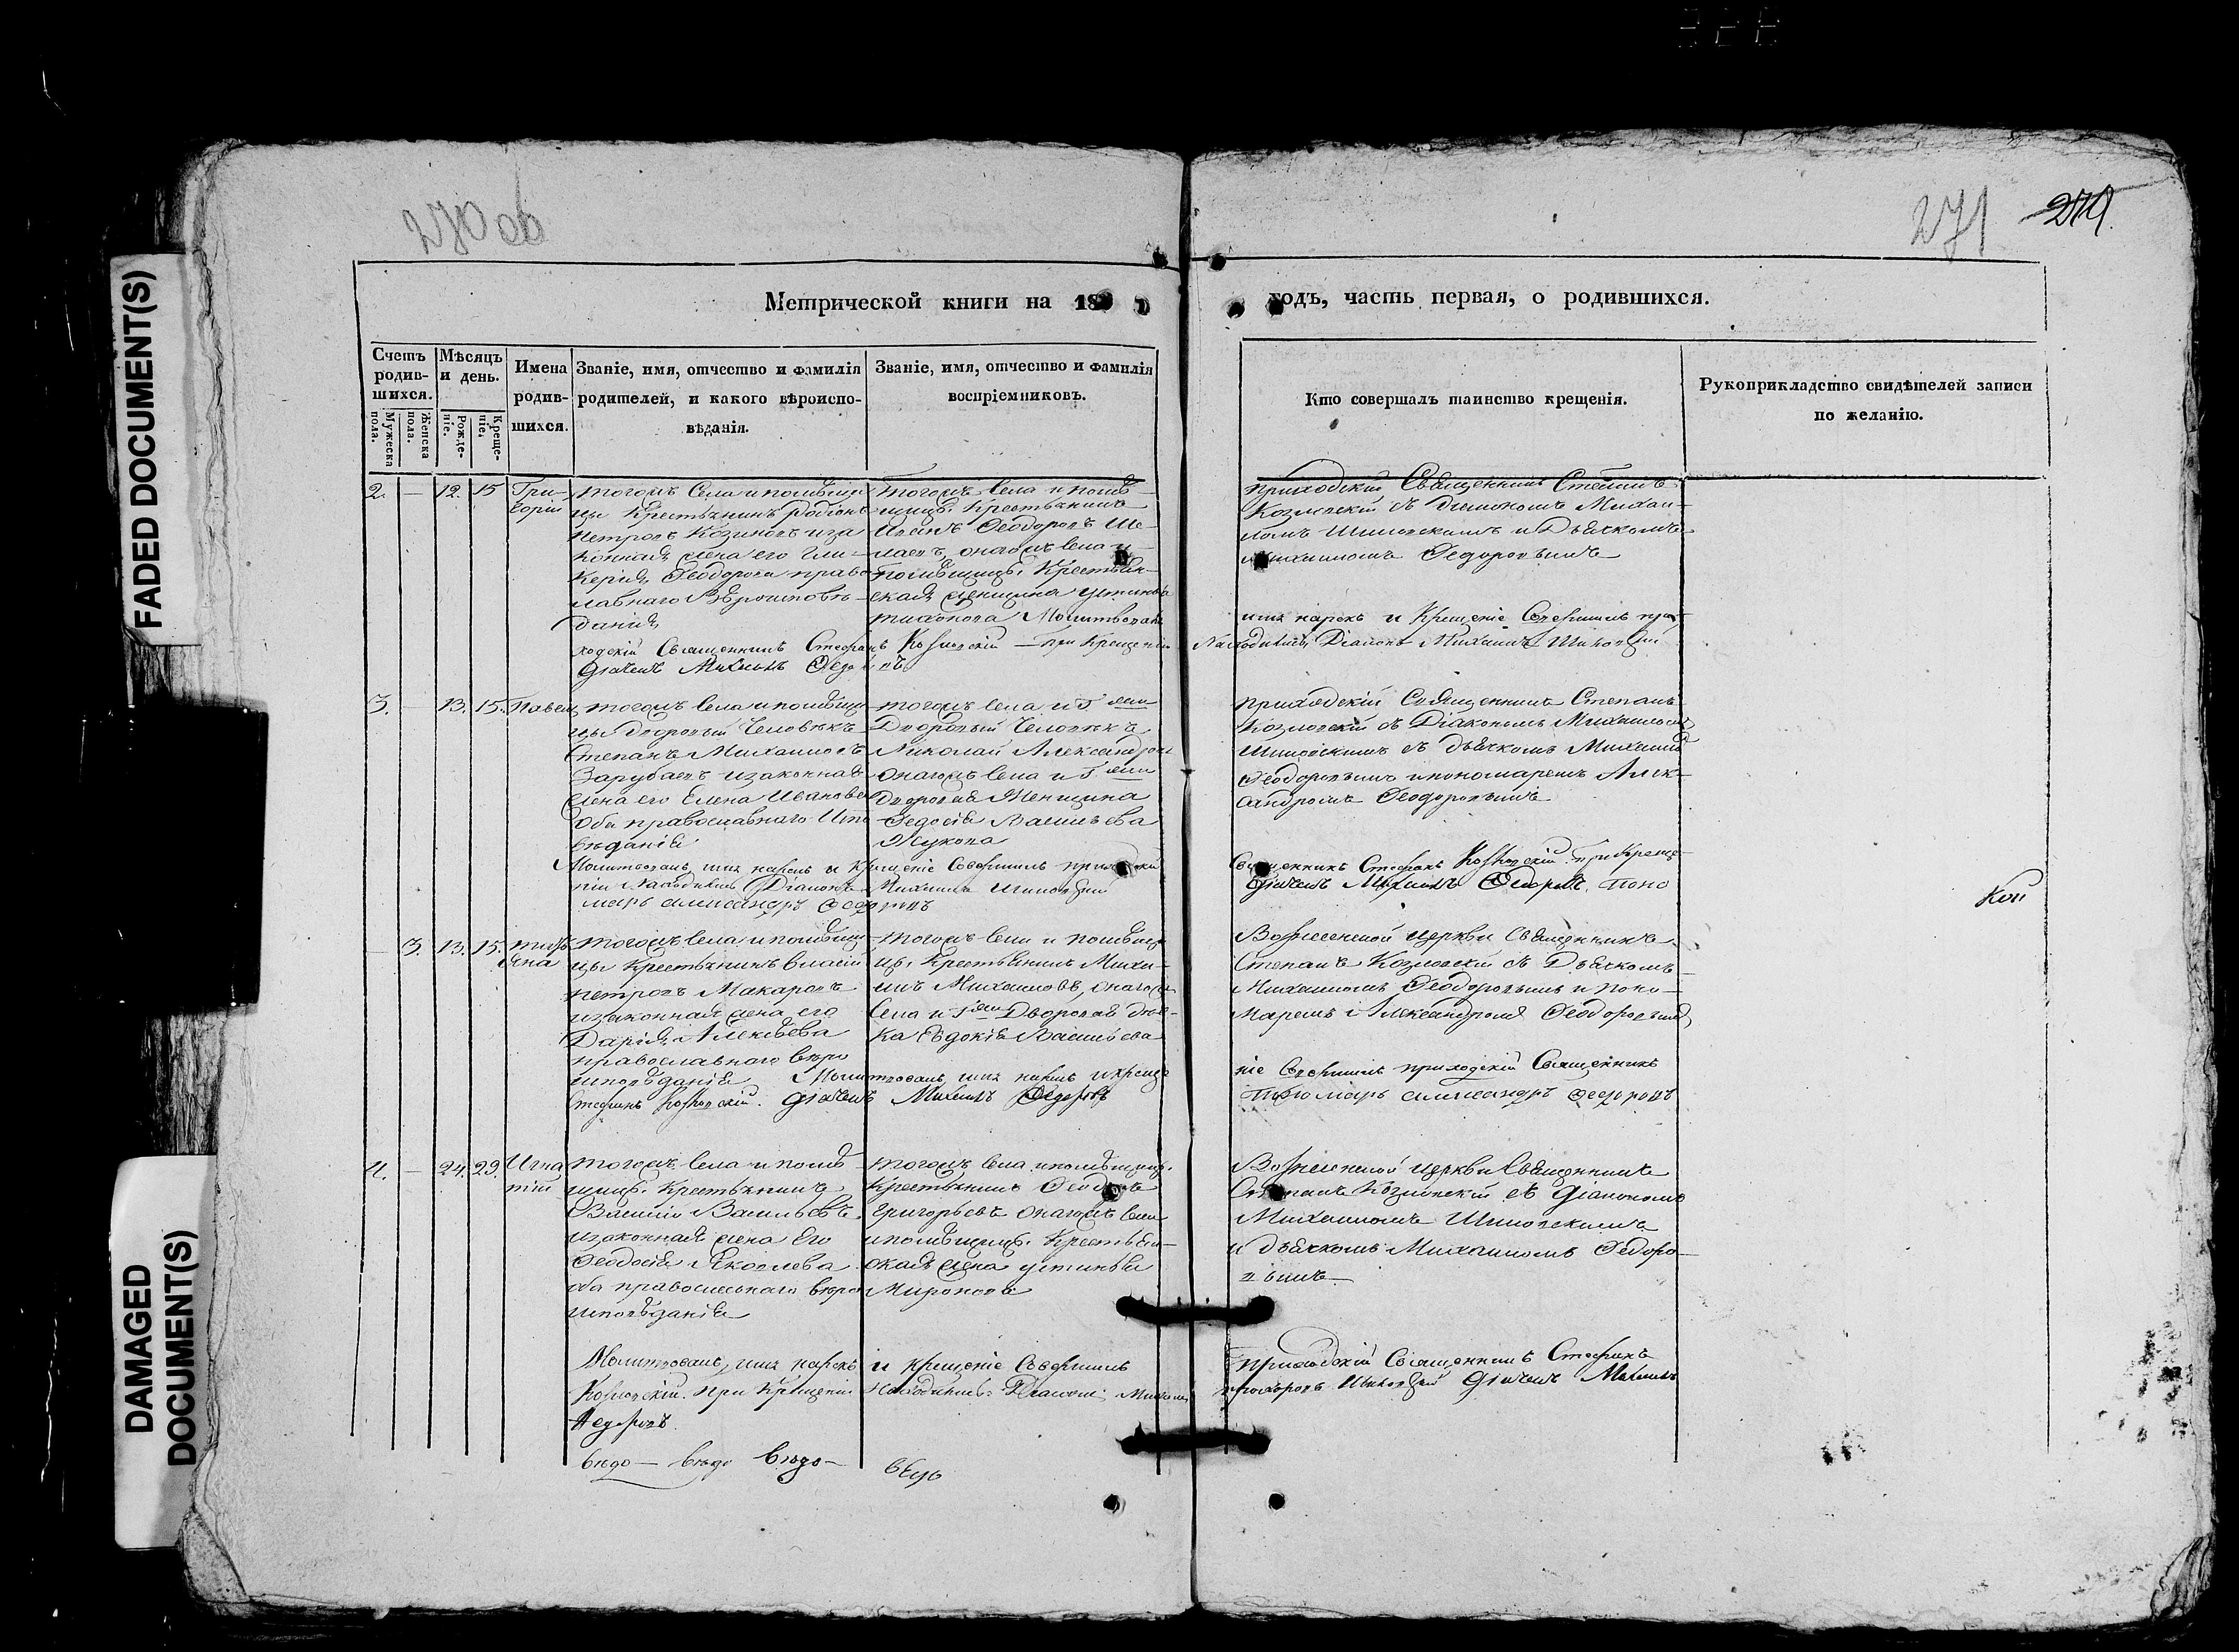 FADED DOCUMENT(S)
DAMAGED DOCUMENT(S)
270 об
271
Метрической книги на 18
годъ, часть первая, о родившихся.
Счетъ родив-шихся.
Мужеска пола.
Женска пола.
Мѣсяцъ и день.
Рожде-ніе.
Креще-ніе.
Имена родив-шихся.
Званіе, имя, отчество и фамилія родителей, и какого вѣроиспо-вѣданія.
Званіе, имя, отчество и фамилія воспріемниковъ.
Кто совершалъ таинство крещенія.
Рукоприкладство свидѣтелей записи по желанію.
2. — 12. 15 Гри-
горій
тогожъ Села и помѣщи
цы Крестьянинъ Родіонъ
Петровъ Козиновъ и за
конная жена его Гли-
керія Ѳеодорова право
славнаго Вѣроисповѣ-
данія
тогожъ Села и помѣ-
щицы Крестьянинъ
Ѳеодоровъ
онагожъ Села и
помѣщицы Крестьян-
ская женщина Устинья
Тихонова Молитвовалъ
приходскій Священникъ Степанъ
Козловскій съ Діакономъ Михаи-
ломъ и Дьячкомъ
Михаиломъ Ѳедоровымъ
имя нарекъ и Крещеніе Совершилъ при-
ходскій Священникъ Стефанъ Козловскій — При Крещеніи Находились Діаконъ Михаилъ
Дьячекъ Михаилъ Ѳедоровъ
3. — 13. 15. Павелъ
тогожъ Села и помѣщи
цы дворовый Человѣкъ
Степанъ Михайловъ
Зарубаевъ и законная
жена его Елена Иванова
Оба православнаго Испо-
вѣданія
тогожъ Села и Г жи
Дворовый Человѣкъ
Николай Александровъ
онагожъ Села и Г жи
Дворовая Женщина
Ѳедосія Васильева
Жукова
приходскій Священникъ Степанъ
Козловскій съ Діакономъ Михаиломъ
съ дьячкомъ Михаил
Ѳеодоровымъ и пономаремъ Алек-
сандромъ Ѳеодоровымъ
Молитвовалъ, имя нарекъ и Крещеніе Совершилъ приходскій
Священникъ Стефанъ Козловскій. При Креще-
ніи Находились Діаконъ Михаилъ
Дьячекъ Михаилъ Ѳедоровъ, Поно
марь Александръ Ѳедоровъ
Кой
— 3. 13. 15. Тать
яна
тогожъ Села и помѣщи
цы Крестьянинъ Власій
Петровъ Макаровъ
и законная жена его
Дарія Алексѣева
православнаго вѣро
исповѣданія
тогожъ Села и помѣщи
цы Крестьянинъ Михаи-
лъ Михайловъ, онагожъ
Села и Г жи Дворовая дѣв-
ка Евдокія Васильева
Вознесенской Церкви Священникъ
Степанъ Козловскій съ Дьячкомъ
Михаиломъ Ѳеодоровымъ и поно-
маремъ Александромъ Ѳеодоровымъ
Молитвовалъ, имя нарекъ и креще
ніе Совершилъ приходскій Священникъ
Стефанъ Козловскій. Дьячекъ Михаилъ Ѳедоровъ
Пономарь Александръ Ѳедоровъ
4. — 24. 29. Игна
тій
тогожъ Села и помѣ
щицы Крестьянинъ
Василій Васильевъ
и законная жена Его
Ѳеодосія Яковлева
оба православнаго вѣро
исповѣданія
тогожъ Села и помѣщицы
Крестьянинъ
Григорьевъ онагожъ Села
и помѣщицы Крестьян-
ская жена Устинья
Миронова
Вознесенской Церкви Священникъ
Степанъ Козловскій съ Діакономъ
Михаиломъ
и дьячкомъ Михаиломъ Ѳедоро-
вымъ
Молитвовалъ, имя нарекъ и крещеніе Совершилъ
приходскій Священникъ Стефанъ
Козловскій. При Крещеніи Находились: Діаконъ Михаилъ
Дьячекъ Михаилъ
Ѳедоровъ